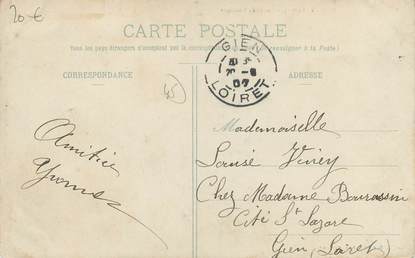 20 €
CARTE POSTALE
Tous les pays étrangers n'acceptent pas la correspondance (se renseigner à la Poste)
CORRESPONDANCE
ADRESSE
45
GIEN
20 -8
07
LOIRET
Amitié
Yvonne
Mademoiselle
Chez Madame
Cité St Lazare
Gien (Loiret)